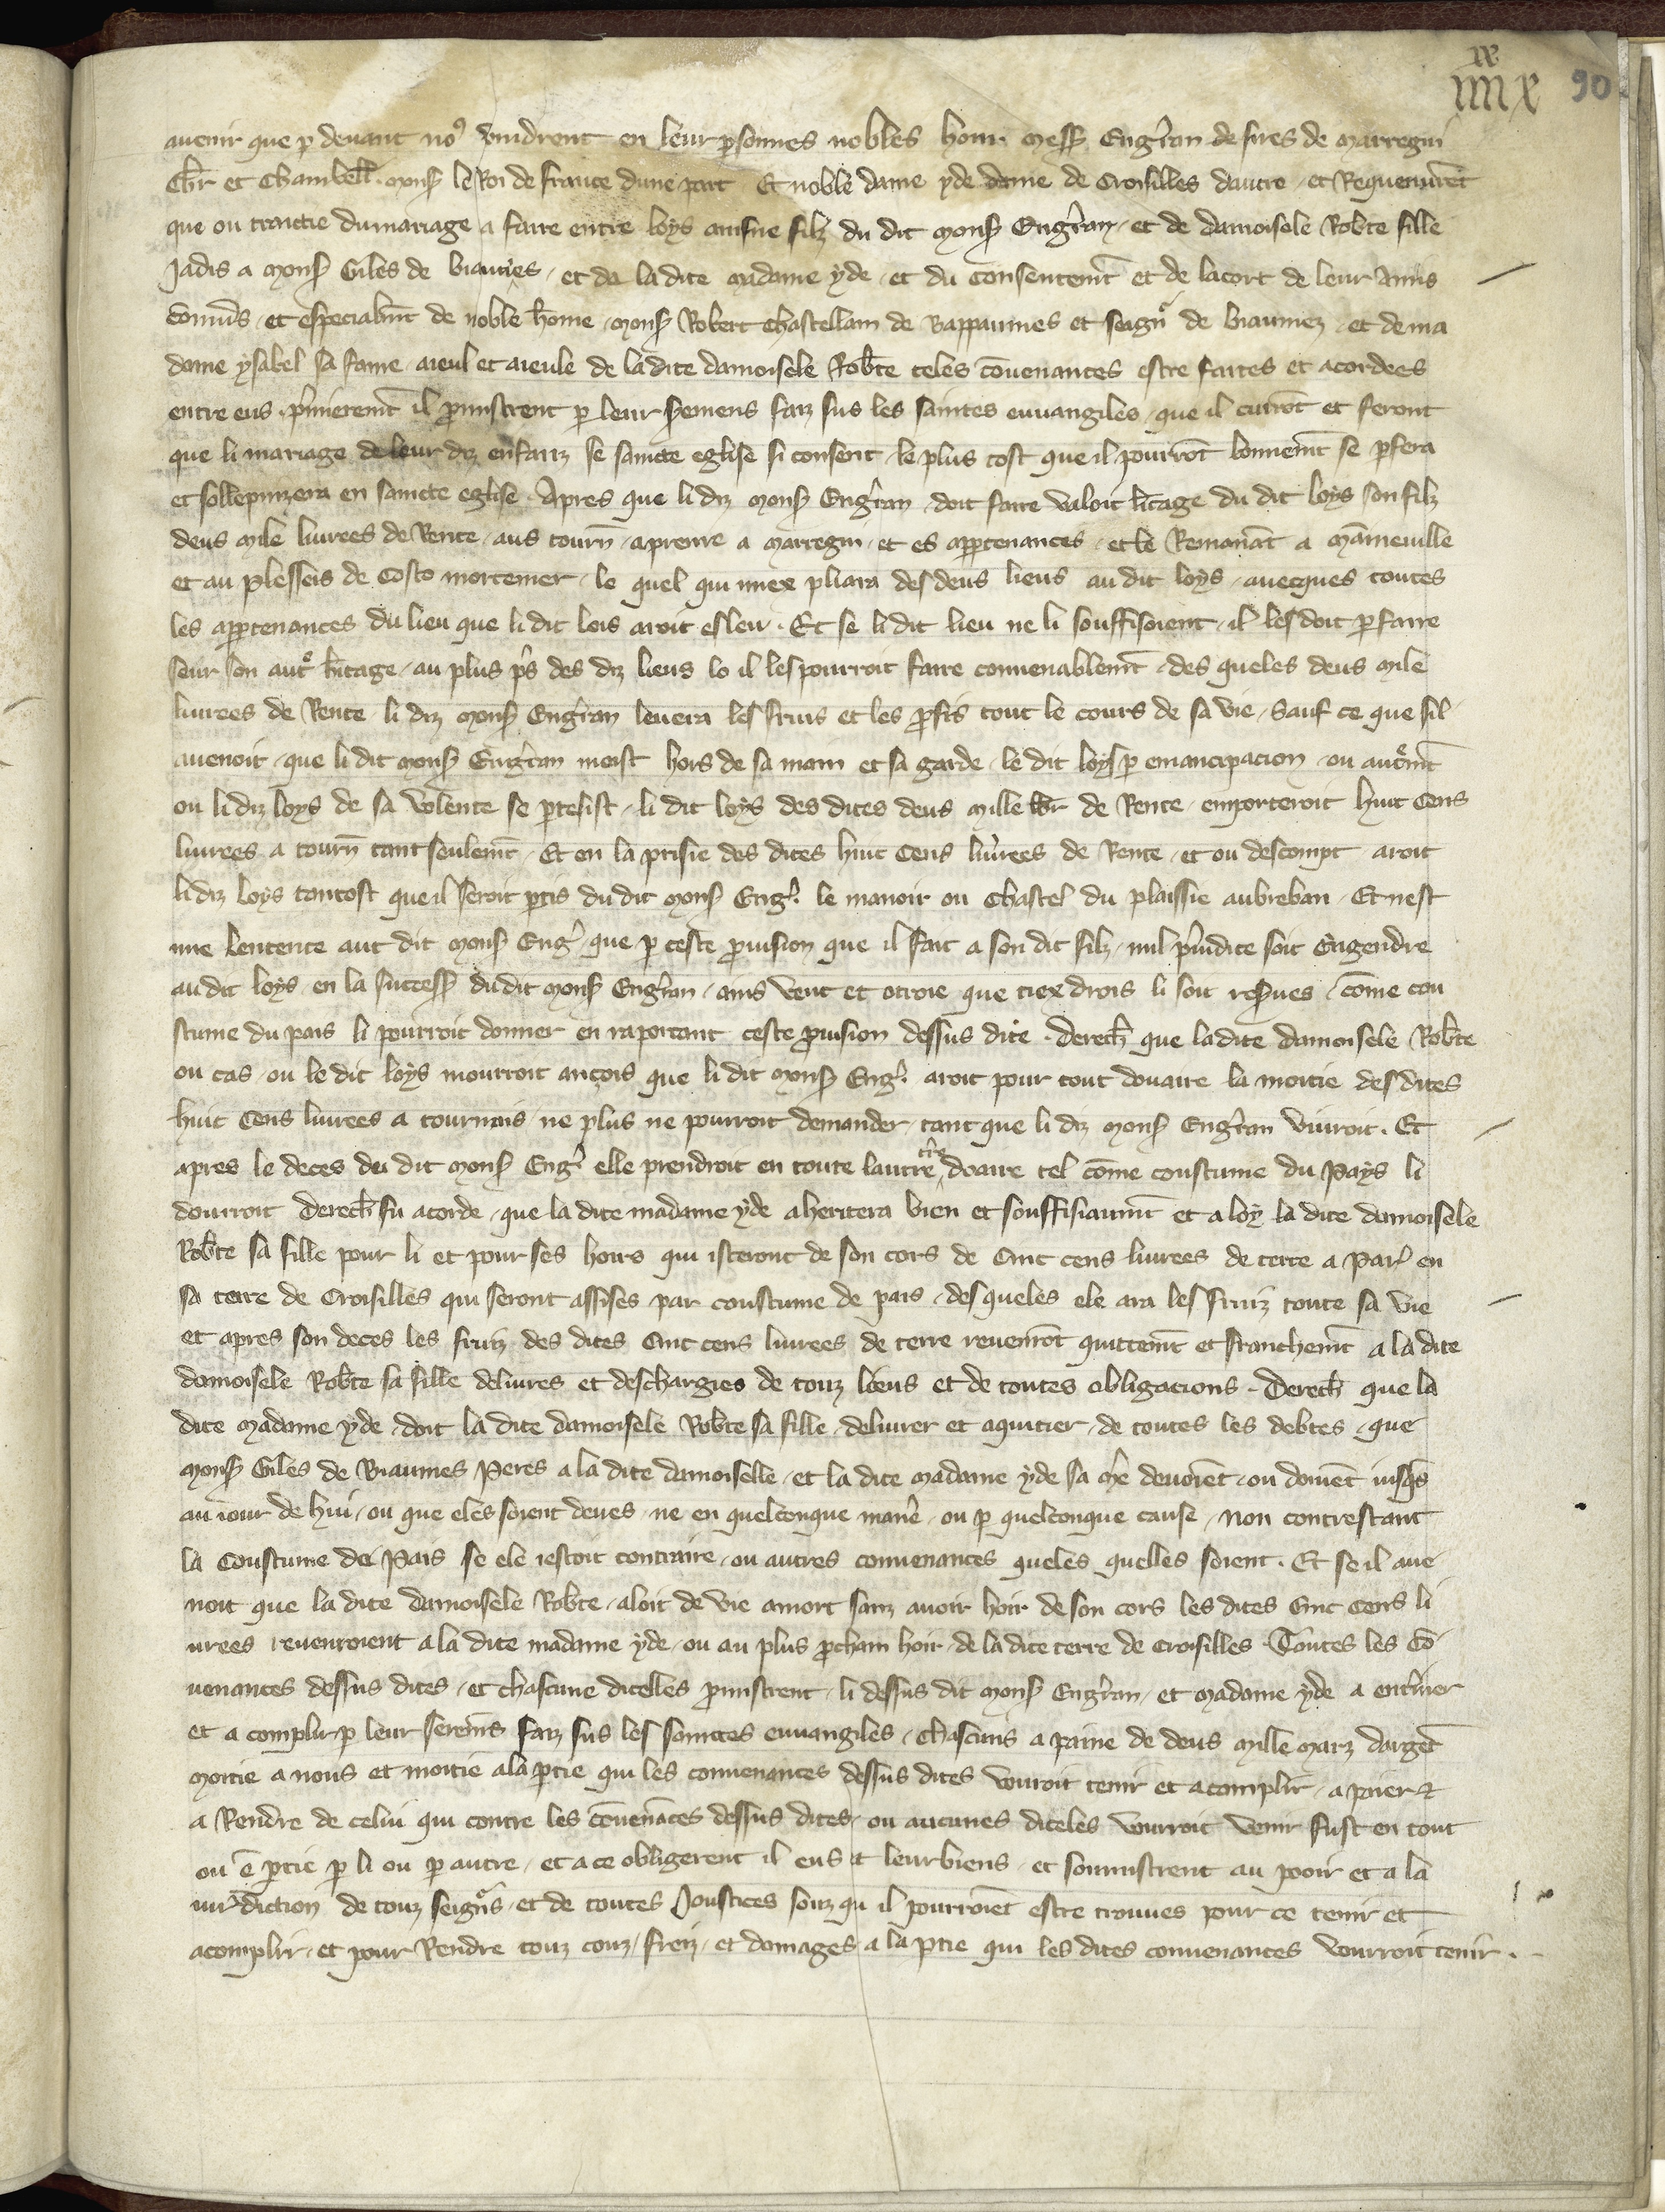 xx
iiii x 90
avenir que p devant no9 vindrent en leur psonnes nobles hom. mess Engrran de sires de marregni
Chlr et Chambell. mons le Roi de france dune part Et noble dame yde dame de Croisilles dautre et Requenurent
que ou traictie du mariage a faire entre loys ainsne filz du dit mons Engrran et de damoisele Robte fille
Jadis a mons Giles de biaumes et de la dite madame yde et du consentemt et de lacort de leur amis
communs et especialmt de noble home mons Robert chastellain de Bappaumes et seignr de biaumez et de ma
dame ysabel sa fame aieul et aieule de la dite damoisele Robte teles covenances estre faites et acordees
entre eus. pmierement il pmistrent p leur seremens faiz sus les saintes euvangiles que il curront et feront
que li mariage de leur diz enfanz se saincte eglise si consent le plus tost que il pourrot bonnemt se pfera
et sollepnizera en saincte eglise. Apres que li diz mons Engrran doit faire valoir litage du dit loys son filz
deus mile livrees de Rente aus tourn a prenre a marregni et es appartenances et le Remanat a mainneville
et au plesseis de Costo mortemer le quel qui miex pliara des deus lieus au dit loys avecques toutes
les appartenances du lieu que li dit lois aroit esleu. Et se li dit lieu ne li souffisoient il les doit pfaire
seur son autre hitage au plus ps des diz lieus lo il les pourroit faire convenablemt des queles deus mile
livrees de Rente li diz mons Engrran levera les fruis et les pfis tout le cours de sa vie Sauf ce que sil
avenoit que li dit mons Engrran meist hors de sa main et sa garde le dit loys p emancipacion ou autremt
ou li diz loys de sa volente se ptesist li dit loys des dites deus mille lbr de Rente emporteroit huit Cens
livrees a tourn tant seulemt Et en la prisie des dites huit Cens livrees de Rente et ou descompt aroit
li diz loys tantost que il seroit ptis du dit mons Engr. le manoir ou chastel du plaissie aubreban Et nest
mie lentente aut dit mons Engr que p ceste pvision que il fait a son dit filz nul pjudice soit Engendre
au dit loys en la success du dit mons Engrran ains veut et otroie que tiex drois li soit resves come cou
stume du pais li pourroit donner en raportant ceste pvision dessus dite. derech que la dite damoisele Robte
ou cas ou le dit loys mourroit ancois que li dit mons Engr. aroit pour tout douaire la moitie des dites
huit Cens livrees a tournois ne plus ne pourroit demander tant que li diz mons Engrran vivroit. Et
apres le deces du dit mons Engr elle prendroit en toute lautre tre doaire tel come coustume du pays li
dourroit derech fu acorde que la dite madame yde aheritera bien et souffisaumt et a loy la dite damoisele
Robte sa fille pour li et pour ses hoirs qui isteront de son cors de Cinc cens livrees de terre a Par en
sa terre de Croisilles qui seront assises par coustume de pais des queles ele ara les fruiz toute sa vie
et apres son deces les fruiz des dites Cinc cens livrees de terre revenrot quittemt et franchemt a la dite
damoisele Robte sa fille delivres et deschargies de touz liens et de toutes obligacions. Derech que la
dite madame yde doit la dite damoisele Robte sa fille delivrer et aquitier de toutes les debtes que
mons Giles de Biaumes peres a la dite damoiselle et la dite madame yde sa me devoiet ou doivet iusqs
au iour de hui ou que eles soient deues ne en quelconque mane ou p quelconque cause non contrestant
la Coustume dei Pais se ele i estoit contraire ou autres convenances queles quelles soient. Et se il ave
noit que la dite damoisele Robte aloit de vie a mort sanz avoir hoir de son cors les dites Cinc Cens li
vrees revenroient a la dite madame yde ou au plus pchain hoir de la dite terre de croisilles Toutes les co
venances dessus dites et chascune dicelles pmistrent li dessus dit mons Engrran et madame yde a enteriner
et a complir p leur seremens faiz sus les sainctes euvangiles chascuns a paine de deus mille marz dargent
moitie a nous et moitie a la ptie qui les convenances dessus dites vouroit tenir et acomplir a paier et
a Rendre de celui qui contre les covenaces dessus dites ou aucunes diceles vourroit venir fust en tout
ou e ptie p li ou p autre et a ce obligerent il eus et leur biens et soumistrent au pooir et a la
iuridiction de touz seigneurs et de toutes Joustices souz qui il pourroiet estre trouves pour ce tenir et
acomplir et pour Rendre touz couz freiz et domages a la ptie qui les dites convenances vourroit tenir.